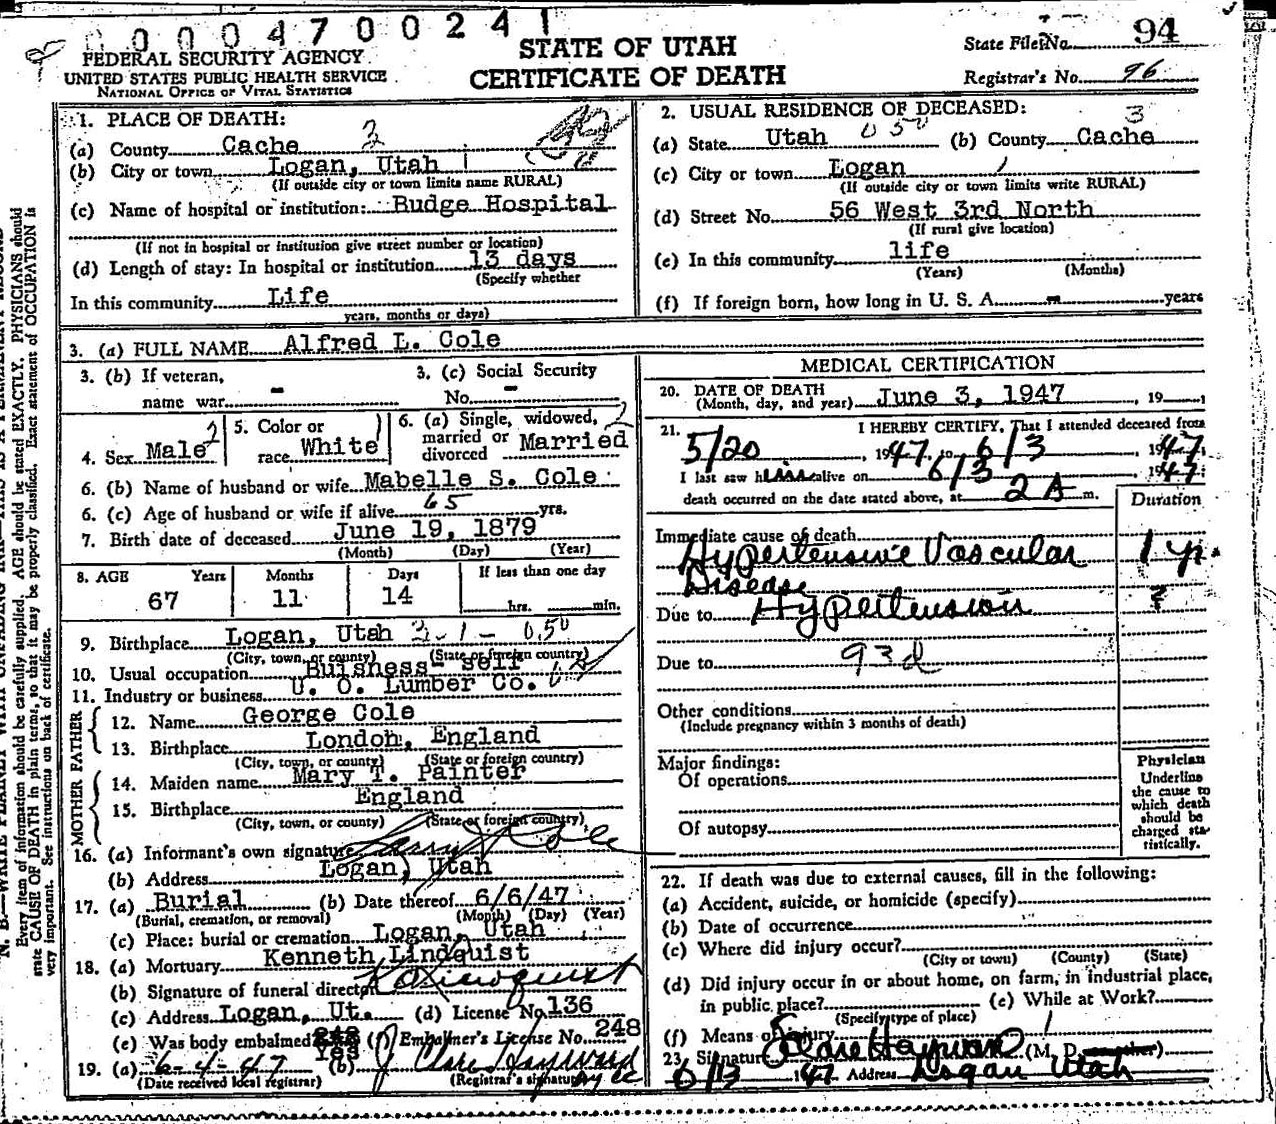 00004700241
STATE OF UTAH
CERTIFICATE OF DEATH
FEDERAL SECURITY AGENCY
UNITED STATES PUBLIC HEALTH SERVICE
NATIONAL OFFICE OF VITAL STATISTICS
State File No. 94
Registrar's No. 96
1. PLACE OF DEATH:
(a) County Cache 3
(b) City or town Logan, Utah
(If outside city or town limits name RURAL)
(c) Name of hospital or institution: Budge Hospital
(If not in hospital or institution give street number or location)
(d) Length of stay: In hospital or institution 13 days
(Specify whether
In this community Life
years, months or days)
2. USUAL RESIDENCE OF DECEASED:
(a) State Utah 050 (b) County Cache 3
(c) City or town Logan
(If outside city or town limits write RURAL)
(d) Street No. 56 West 3rd North
(If rural give location)
(e) In this community life
(Years) (Months)
(f) If foreign born, how long in U. S. A. - years
3. (a) FULL NAME Alfred L. Cole
3. (b) If veteran,
name war -
3. (c) Social Security
No. -
4. Sex Male 2
5. Color or
race White 1
6. (a) Single, widowed, 2
married or
divorced Married
6. (b) Name of husband or wife Mabelle S. Cole
6. (c) Age of husband or wife if alive 65 yrs.
7. Birth date of deceased June 19, 1879
(Month) (Day) (Year)
8. AGE Years Months Days If less than one day
67 11 14 hrs. min.
9. Birthplace Logan, Utah 3-1- 050
(City, town, or county) (State or foreign country)
10. Usual occupation Buisness- self
11. Industry or business U. O. Lumber Co.
FATHER
12. Name George Cole
13. Birthplace London, England
(City, town, or county) (State or foreign country)
MOTHER
14. Maiden name Mary T. Painter
15. Birthplace England
(City, town, or county) (State or foreign country)
16. (a) Informant's own signature Cole
(b) Address Logan, Utah
17. (a) Burial (b) Date thereof 6/6/47
(Burial, cremation, or removal) (Month) (Day) (Year)
(c) Place: burial or cremation Logan, Utah
18. (a) Mortuary Kenneth Lindquist
(b) Signature of funeral director K Lindquist
(c) Address Logan, Ut. (d) License No. 136
(e) Was body embalmed Yes (f) Embalmer's License No. 248
19. (a) 6-4-47 (b) J Clare Hayward
(Date received local registrar) (Registrar's signature)
MEDICAL CERTIFICATION
20. DATE OF DEATH
(Month, day, and year) June 3, 1947, 19
21. I HEREBY CERTIFY, That I attended deceased from
5/20, 1947, to 6/3, 1947,
I last saw him alive on 6/3 1947;
death occurred on the date stated above, at 2 A m.
Duration
Immediate cause of death
Hypertensive Vascular 1 yr.
Disease
Due to Hypertension ?
Due to 93d
Other conditions
(Include pregnancy within 3 months of death)
Major findings:
Of operations
Of autopsy
Physician
Underline
the cause to
which death
should be
charged sta-
tistically.
22. If death was due to external causes, fill in the following:
(a) Accident, suicide, or homicide (specify)
(b) Date of occurrence
(c) Where did injury occur?
(City or town) (County) (State)
(d) Did injury occur in or about home, on farm, in industrial place,
in public place? (e) While at Work?
(Specify type of place)
(f) Means of injury
23. Signature J Clare Hayward (M. D. or other)
6/13 1947 Address Logan Utah
N. B.—WRITE PLAINLY WITH UNFADING INK—THIS IS A PERMANENT RECORD
Every item of information should be carefully supplied. AGE should be stated EXACTLY. PHYSICIANS should
state CAUSE OF DEATH in plain terms, so that it may be properly classified. Exact statement of OCCUPATION is
very important. See instructions on back of certificate.